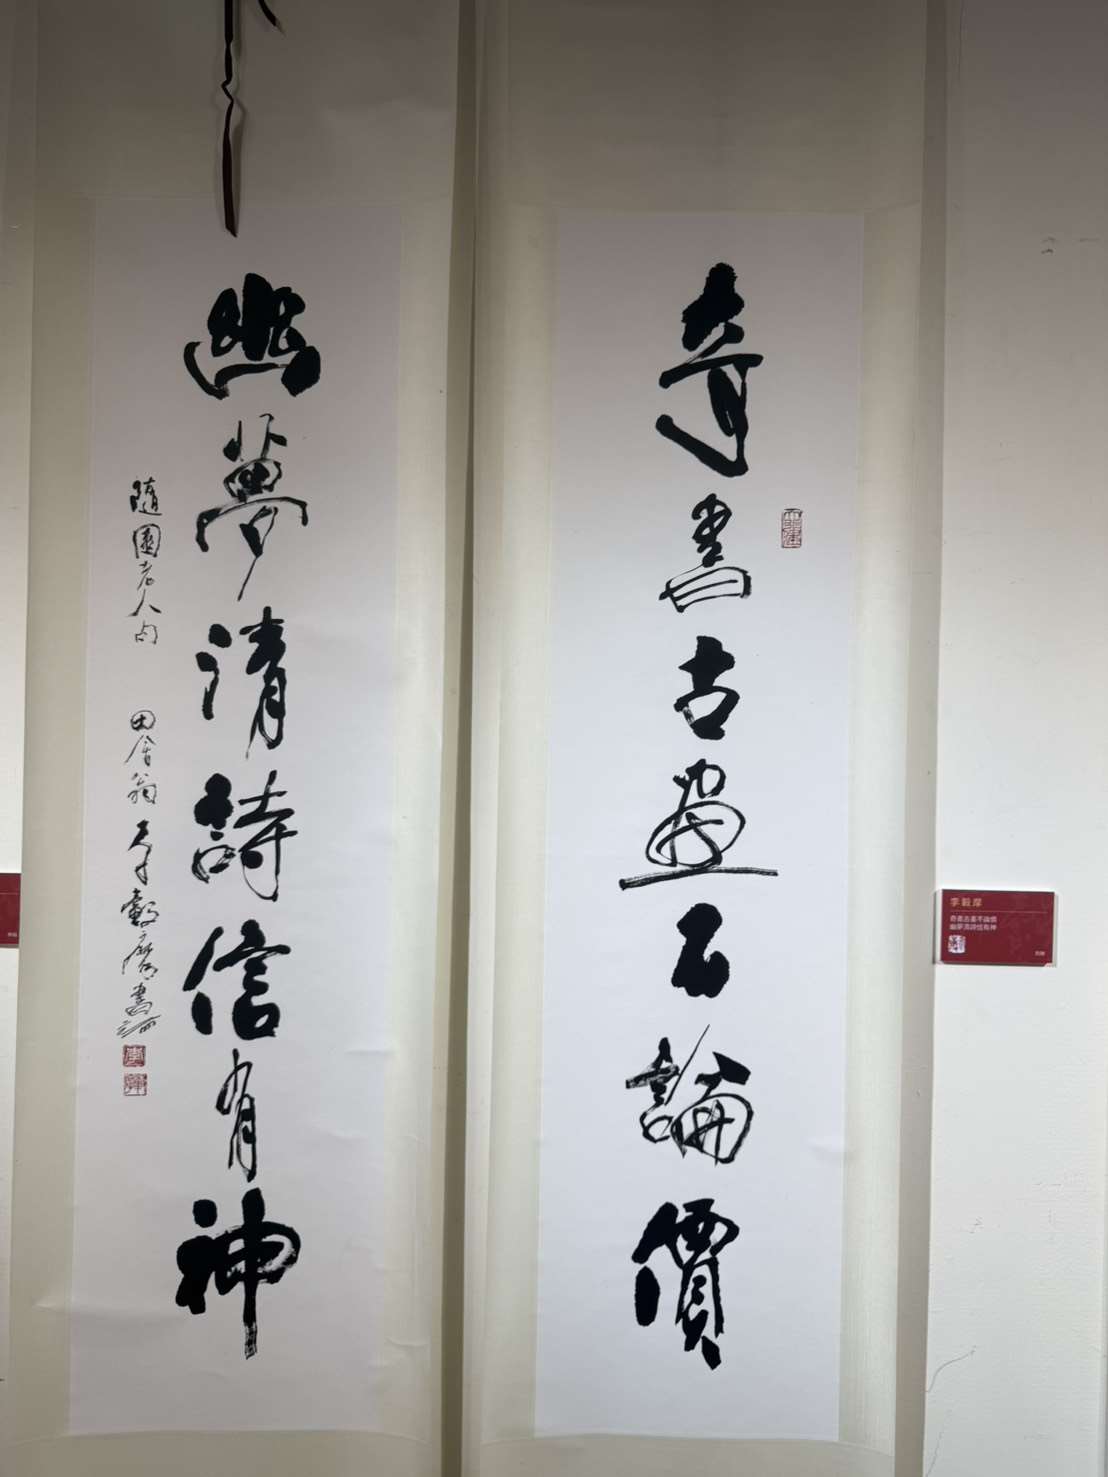 奇書古畫不論價
幽夢清詩信有神
隨園老人句
田舍翁 李轂摩書
李轂摩
奇書古畫不論價
幽夢清詩信有神